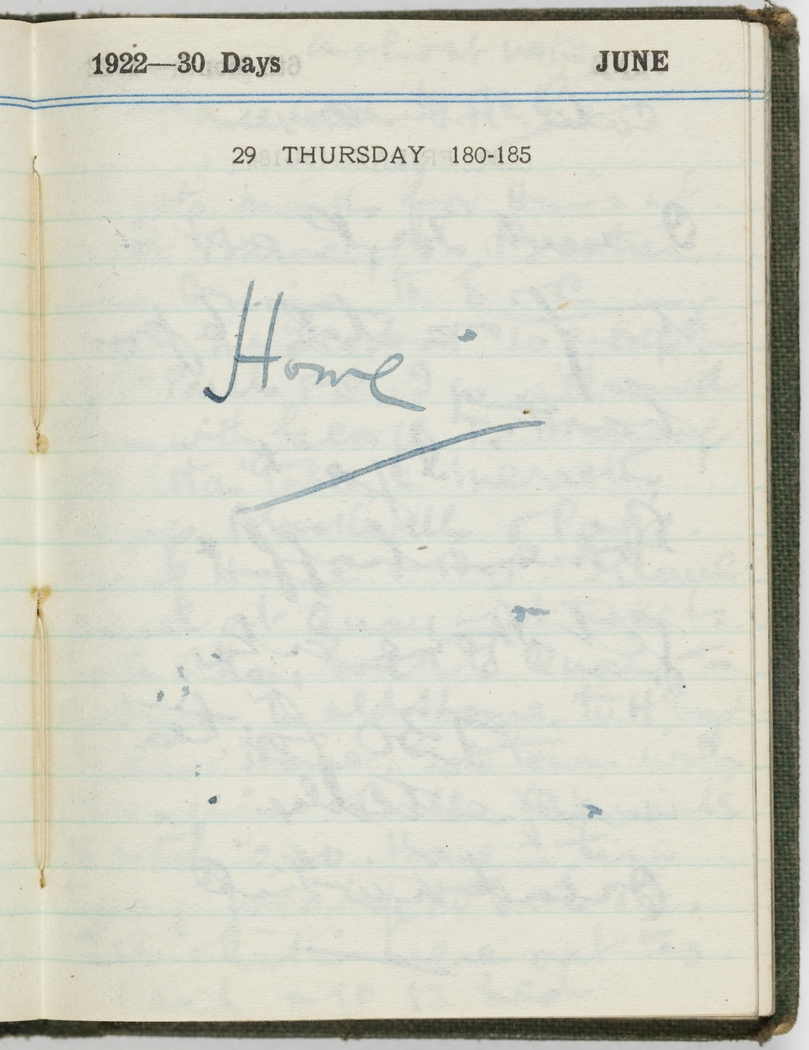 1922—30 Days JUNE
29 THURSDAY 180-185
Home